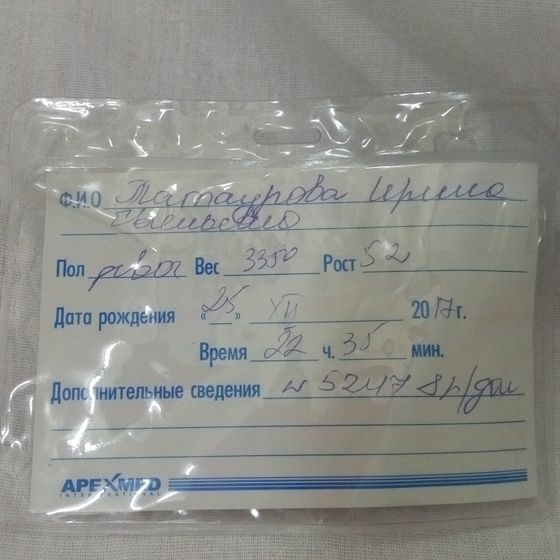 Ф.И.О Татаурова Ирина
Пол Вес 3350 Рост 52
Дата рождения «25» XII 2017 г.
Время 22 ч. 35 мин.
Дополнительные сведения 5247
APEXMED
INTERNATIONAL